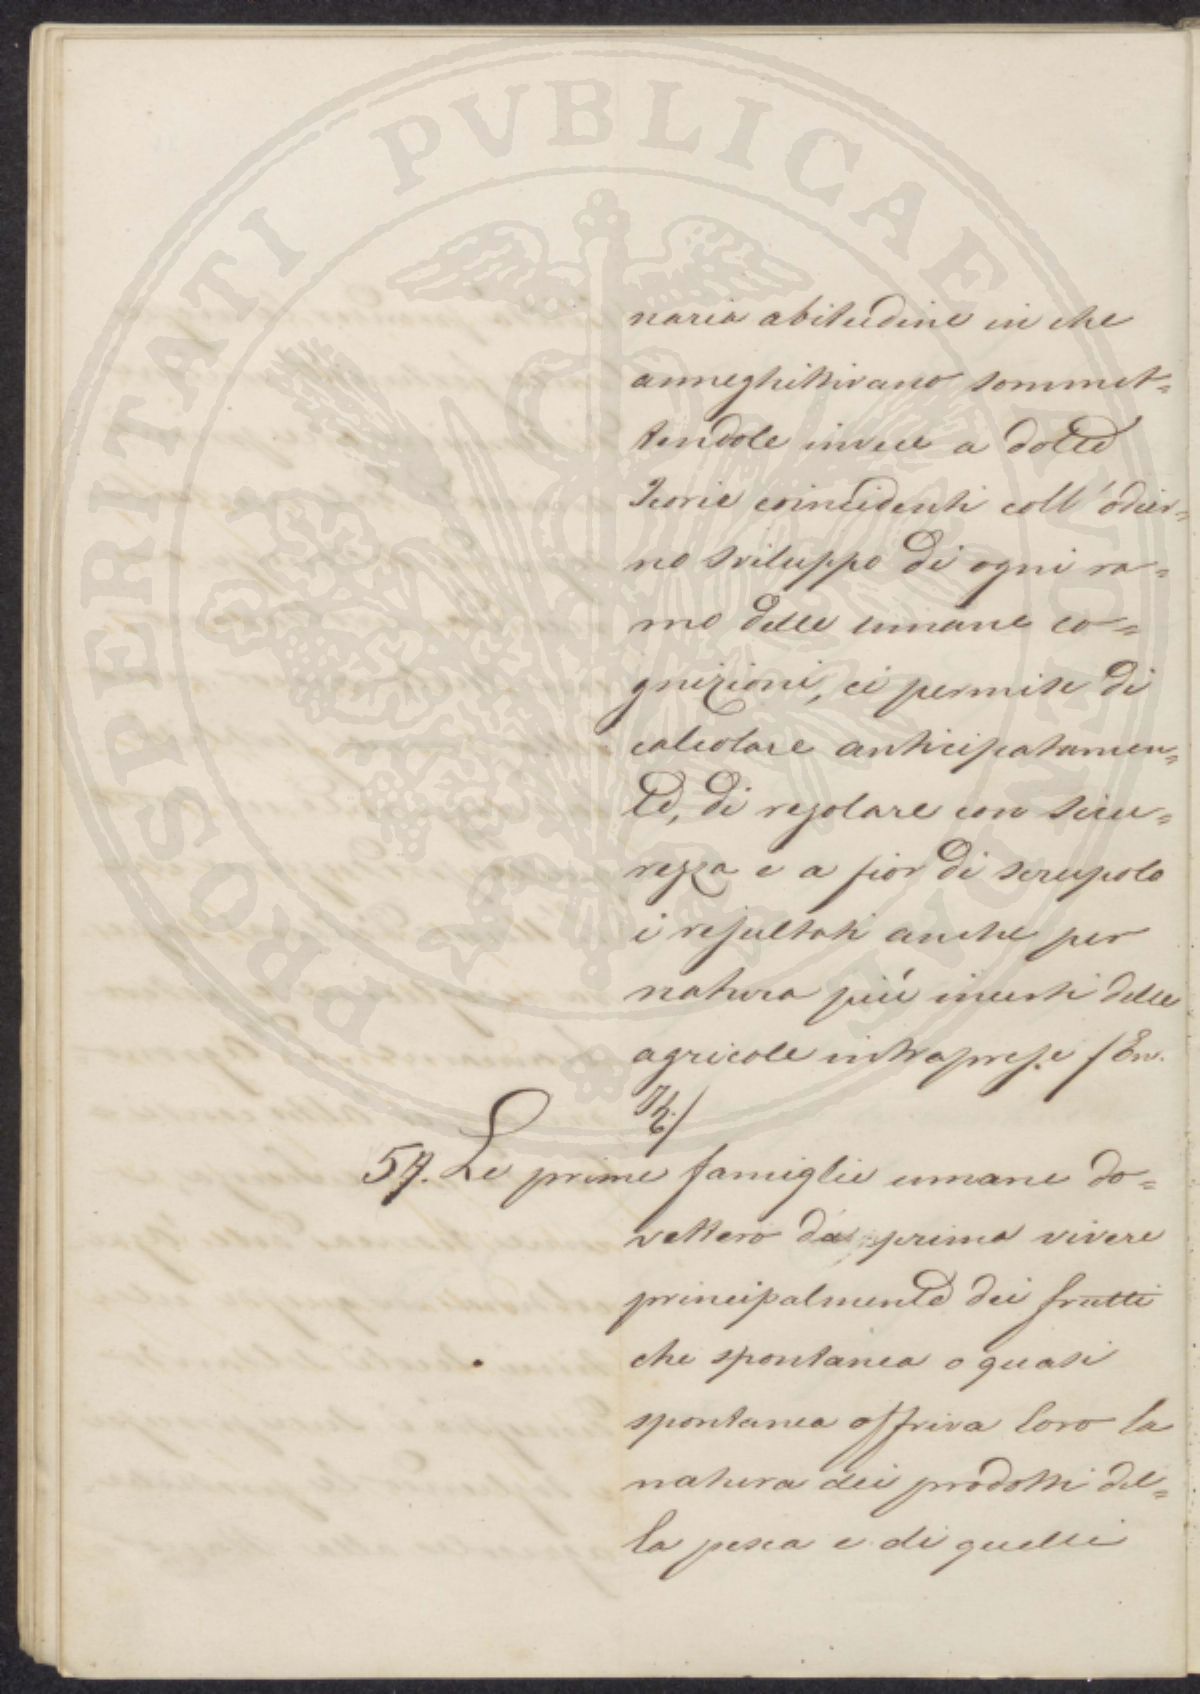 PROSPERITATI PVBLICAE AVGENDAE
naria abitudine in che
anneghittivano sommet=
tendole invece a dotte
Teorie coincidenti coll'odier=
no sviluppo di ogni ra=
mo delle umane co=
gnizioni, ci permise di
calcolare anticipatamen=
te, di regolare con sicu=
rezza e a fior di scrupolo
i resultati anche per
natura più incerti delle
agricole intraprese / En.
/
57. Le prime famiglie umane do=
vettero da prima vivere
principalmente dei frutti
che spontanea o quasi
spontanea offriva loro la
natura dei prodotti del=
la pesca e di quelli